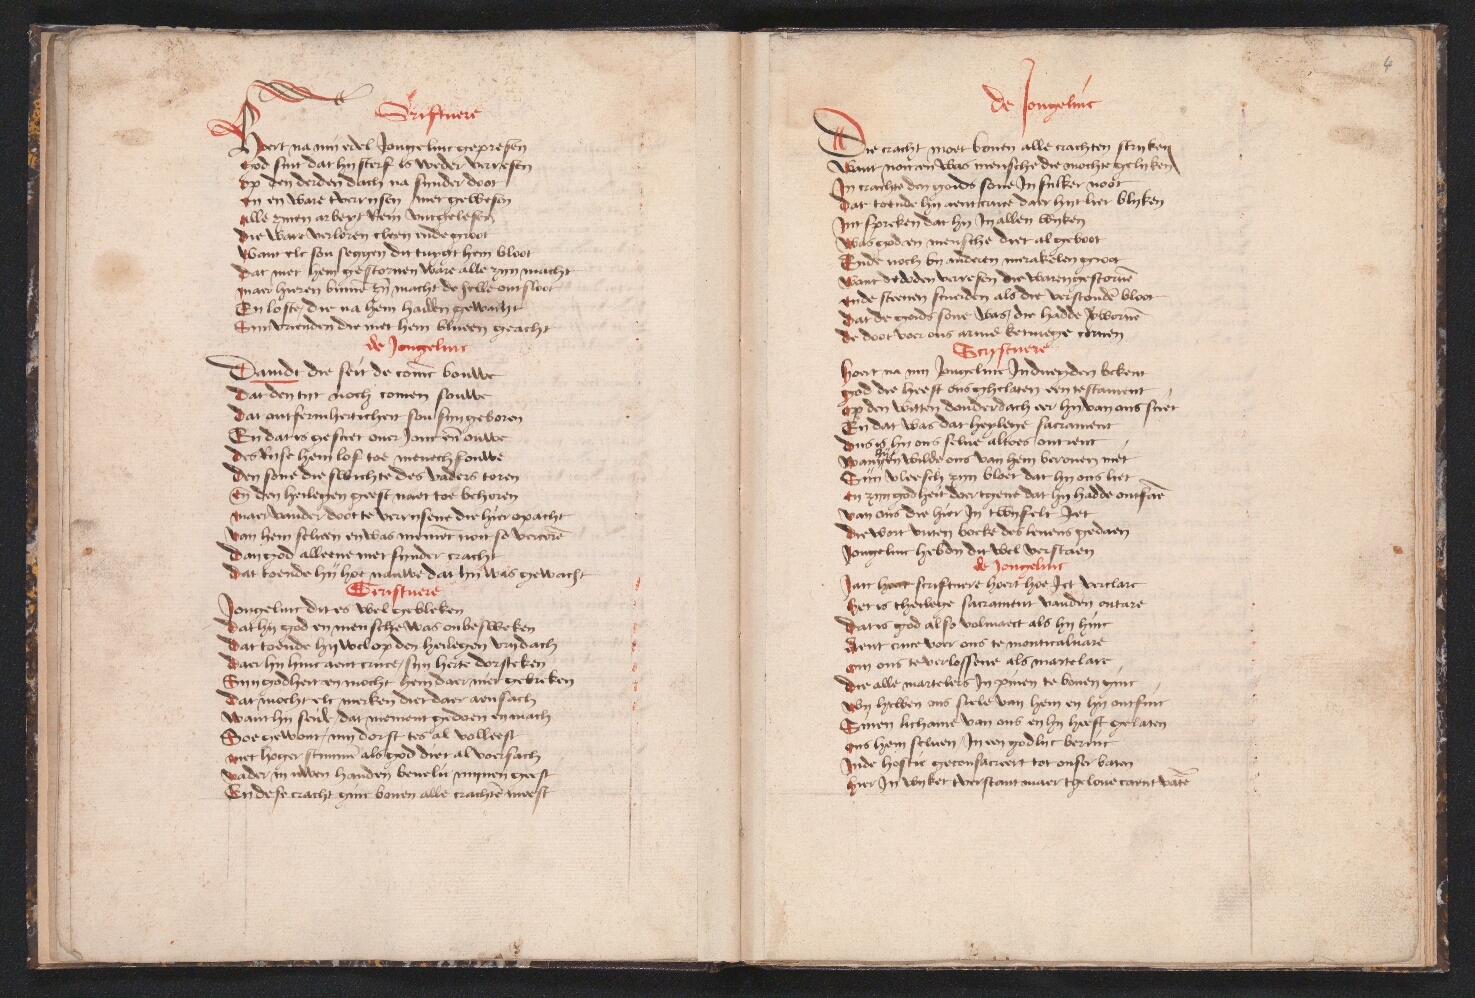 Scriftuere
Hoert na mij edel Jongelinc gepresen
God sint dat hij sterf is weder verresen
op den derden dach na sijnder doot
en en ware tverrijsen niet gewesen
alle zijnen arbeyt
die ware verloren cleen ende groot
want elc sou seggen dit tuycht hem bloot
dat met hem gestorven ware alle zijn macht
maer hier en binnen zijn macht de helle ontsloot
En loste die na hem hadden gewacht
Sijn vrienden die met hem bleven geacht
de Jongelinc
Davidt die seit de comst bouwe
Dat den tyt noch comen souwe
Dat ontfermherticheit sou sijn geboren
En dat is geschiet over Jonc en ouwe
des lyse hem lof toe menech souwe
den sone die swichte des vaders toren
En den heilegen geest naer toe behoren
maer vander doot te verrijsene die hier op acht
van hem selven en was niement noit so vercoren
Dan god alleene met sijnder cracht
dat toende hij hoe nauwe dat hij was gewacht
Scriftuere
Jongelinc dit es wel gebleken
dat hij god en mensche was onbesweken
dat toende hij wel op den heilegen vrydach
daer hij hinc aent cruce sijn herte dorsteken
Sijn godheit en mocht hem daer niet gebreken
dat mocht elc merken diet daer aensach
want hij seide dat niement gedoen en mach
Soe gewont mij dorst tes al volleest
met hoger stemmen als god diet al voersach
vader in uwen handen bevelic mijnen geest
En dese cracht ginc boven alle crachten meest
4
de Jongelinc
Die cracht moet boven alle crachten strijken
want noit en was mensche die mochte gelijken
In crachte den goids sone In sulker noot
dat toende hij aent cruce daer hijt liet blijken
Int spreken dat hij In allen wijken
was god en mensche diet al geboot
Ende noch bij anderen mirakelen groot
want de doden verresen die waren gestorven
ende steenen scuerden als die verstonden bloot
dat de goids sone was die hadde verworven
de doot voer ons arme ketivege
Scriftuere
hoert na mij Jongelinc In duechden bekent
god die heeft ons ghelaten een testament
op den witten donderdach eer hij van ons sciet
En dat was dat heylege sacrament
dus is hij ons selve altoes ontrent
want hij en wilde ons van hem beroven niet
Sijn vleesch zijn bloet dat hij ons liet
en zijn godheit doer tgene dat hij hadde ontfaen
van ons die hier In twyfelt Iet
die wort uuten boecke des levens gedaen
Jongelinc hebdij dit wel verstaen
de Jongelinc
Jaic scriftuere hoert hoe Ict verclare
het is theilege sacrament vanden outare
dat is god also volmaect als hij hinc
Aent cruce voer ons te monticalvare
om ons te verlossene als martelare
die alle martelers In pinen te boven ginc
wij hebben ons siele van hem en hij ontfinc
Sinen lichame van ons en hij heeft gelaten
ons hem selven In een godlijc berinc
Inde hostie geconsacreert tot onser baten
hier In wijket tverstant maer tgelove